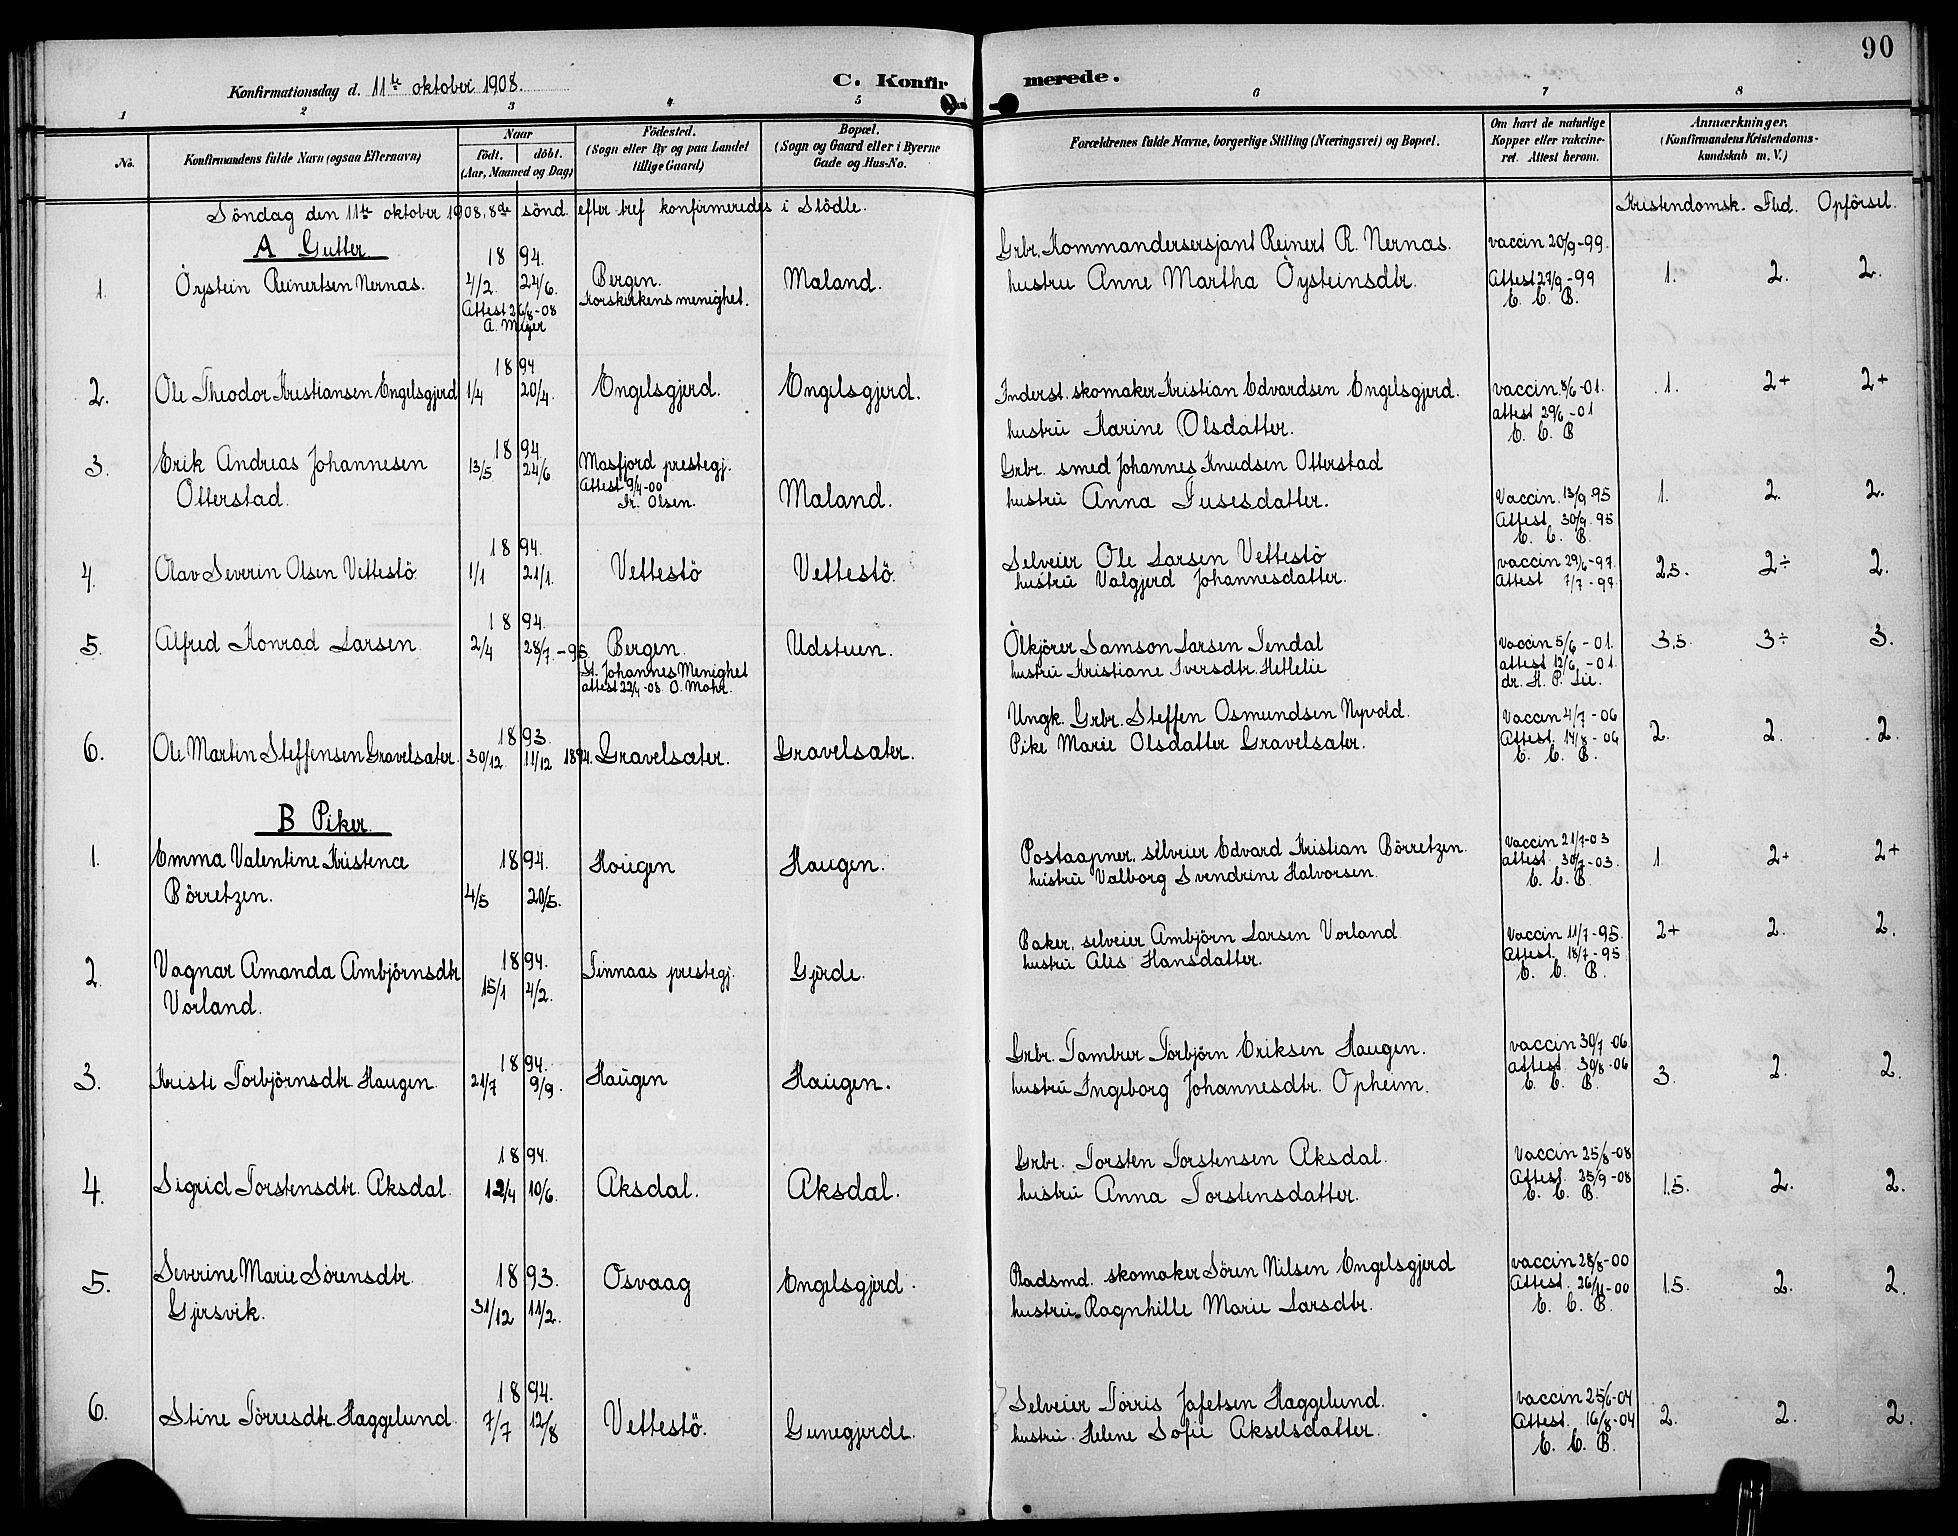 90
Konfirmationsdag d. 11te oktober 1908.
C. Konfirmerede.
1 2 3 4 5 6 7 8
No.
Konfirmandens fulde Navn (ogsaa Efternavn)
Naar
födt. döbt.
(Aar, Maaned og Dag)
Födested.
(Sogn eller By og paa Landet
tillige Gaard)
Bopæl.
(Sogn og Gaard eller i Byerne
Gade og Hus-No.
Forældrenes fulde Navne, borgerlige Stilling (Næringsvei) og Bopæl.
Om havt de naturlige
Kopper eller vakcine-
ret. Attest herom.
Anmærkninger,
(Konfirmandens Kristendoms-
kundskab m. V.)
Söndag den 11te oktober 1908, 8de sönd. efter tref konfirmeredes i Stödle.
Kristendomsk. Flid. Opförsel.
A Gutter
1. Öystein Reinertsen Nernas.
1894.
4/2. 24/6.
Attest 26/8-08
A. Meyer
Bergen.
Korskirkens menighet.
Maland.
Grbr. Kommandersersjant Reinert R. Nernas.
hustru Anne Martha Öysteinsdtr.
vaccin 20/9-99.
Attest 27/9-99
E. C. B.
1. 2. 2.
2. Ole Theodor Kristiansen Engelsgjerd
1894
1/4 20/4.
Engelsgjerd.
Engelsgjerd.
Inderst. skomaker Kristian Edvardsen Engelsgjerd.
hustru Karine Olsdatter.
vaccin. 8/6-01.
attest 29/6-01
E. C. B
1. 2+ 2+
3. Erik Andreas Johannesen
Otterstad.
1894.
13/5 24/6
Masfjord prestegj.
Attest 9/4-00
Fr. Olsen.
Maland.
Grbr. smed Johannes Knudsen Otterstad
hustru Anna Tusesdatter.
Vaccin. 13/9 95
Attest. 30/9. 95
E. C. B.
1. 2. 2.
4. Olav Severin Olsen Vettestö
1894.
1/1 21/1.
Vettestö
Vettestö.
Selveier Ole Larsen Vettestö
hustru Valgjerd Johannesdatter.
vaccin 29/6-97.
Attest 7/7-97.
2.5. 2÷ 2.
5. Alfred Konrad Larsen
1894.
2/4 28/7-95
Bergen.
St. Johannes Menighet
attest 22/4-08. O. Mohr.
Udstuen.
Ölkjörer Samson Larsen Tendal
hustru Kristiane Iversdtr. Hetlelie
Vaccin 5/6-01.
attest 12/6-01.
dr. K. P. Lie.
3.5. 3÷ 3.
6. Ole Martin Steffensen Gravelsæter.
1893.
30/12 11/12 1894.
Gravelsæter.
Gravelsæter.
Ungk. Grbr. Steffen Osmundsen Nyvold.
Pike Marie Olsdatter Gravelsæter.
Vaccin 4/7-06
Attest. 14/8-06
E. C. B.
2. 2. 2.
B Piker.
1. Emma Valentine Kristence
Börretzen.
1894.
4/5 20/5.
Haugen
Haugen.
Postaapner, selveier Edvard Kristian Börretzen.
hustru Valborg Svendrine Halvorsen.
Vaccin 21/7-03
attest. 30/7-03.
E. C. B
1 2+ 2+
2. Vagnar Amanda Ambjörnsdtr
Vorland.
1894.
15/1 4/2.
Finnaas prestegj.
Gjerde.
Baker, selveier Ambjörn Larsen Vorland
hustru Ales Hansdatter.
Vaccin 11/7-95.
Attest. 18/7-95
E. C. B.
2+ 2. 2.
3. Kristi Torbjörnsdtr. Haugen.
1894.
21/7 9/9.
Haugen
Haugen.
Grbr. Tømbrer Torbjörn Eriksen Haugen.
hustru Ingeborg Johannesdtr. Opheim.
vaccin 30/7-06.
Attest 30/8-06
E. C. B.
3. 2. 2.
4. Sigrid Torstensdtr. Aksdal.
1894.
12/4 10/6.
Aksdal.
Aksdal.
Grbr. Torsten Torstensen Aksdal.
hustru Anna Torstensdatter.
Vaccin 25/8-08
Attest. 25/9-08
E. C. B
1.5. 2. 2.
5. Severine Marie Sörensdtr.
Gjersvik.
1893.
31/12 11/2.
Osvaag
Engelsgjerd.
Pladsmd. skomaker Sören Nilsen Engelsgjerd
hustru. Ragnhille Marie Larsdtr.
vaccin 28/8-00
Attest. 26/11-00
E. C. B.
1.5. 2. 2.
6. Stine Törresdtr. Haggelund.
1894.
7/7 12/8
Vettestö.
Gunegjerde.
Selveier Törris Jafetsen Haggelund.
hustru. Helene Sofie Akselsdatter.
vaccin 25/6-04
Attest. 16/8-04
E. C. B.
2. 2. 2.